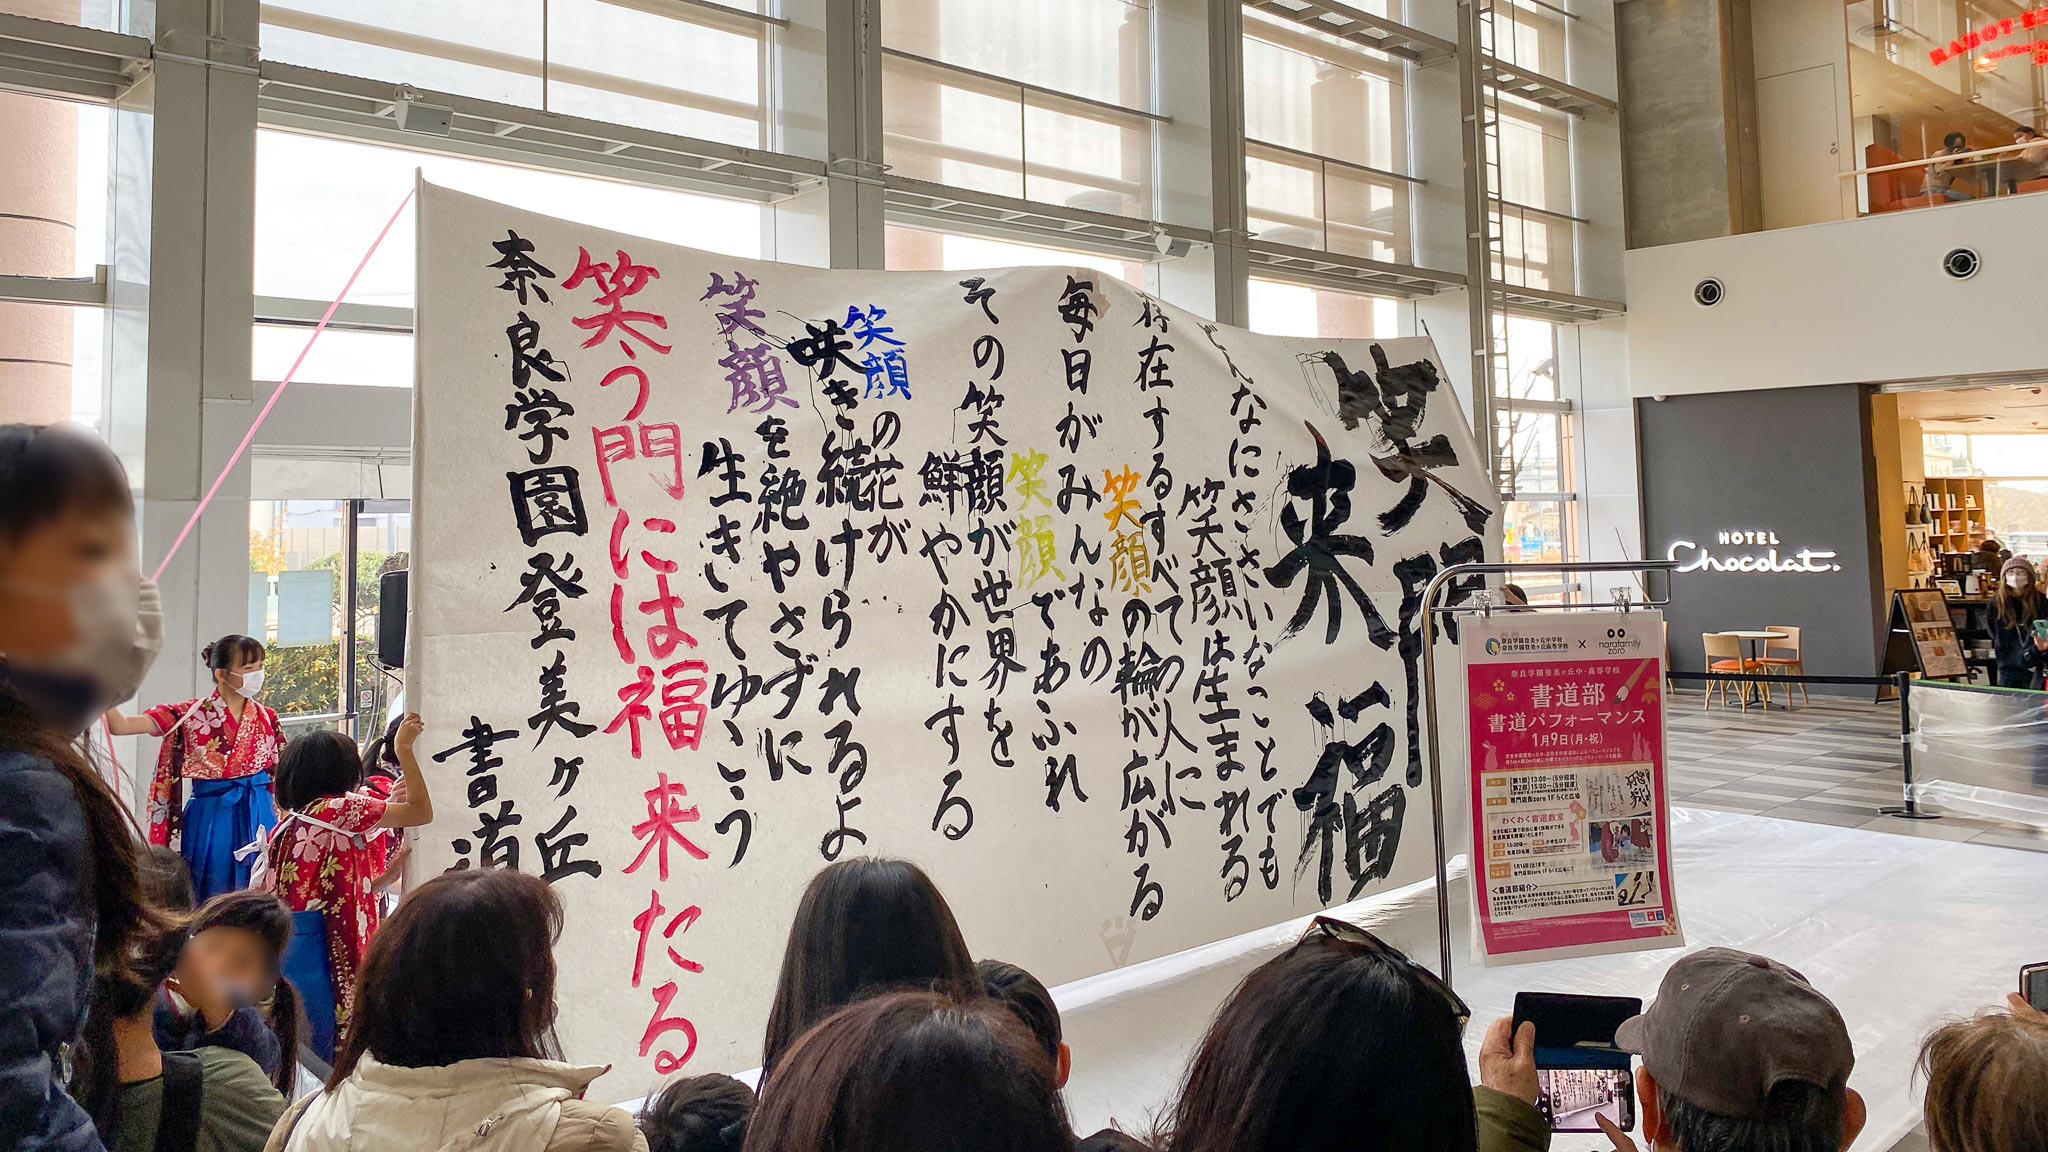 笑門
来福
どんなにささいなことでも
笑顔は生まれる
存在するすべての人に
笑顔の輪が広がる
毎日がみんなの
笑顔であふれ
その笑顔が世界を
鮮やかにする
笑顔の花が
咲き続けられるよ
笑顔を絶やさずに
生きてゆこう
笑う門には福来たる
奈良学園登美ヶ丘
書道
HOTEL
Chocolat.
奈良学園登美ヶ丘中学校
奈良学園登美ヶ丘高等学校
×
narafamily
zoro
奈良学園登美ヶ丘中・高等学校
書道部
書道パフォーマンス
1月9日(月・祝)
【第1部】13:00〜(5分程度)
【第2部】15:00〜(5分程度)
専門店街zoro 1F らくだ広場
わくわく書道教室
<書道部紹介>